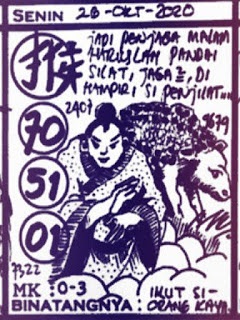 SENIN 26-OKT-2020
猴
JADI PENJAGA MALAM
HARUSLAH PANDAI
SILAT, JAGA², DI
HAMPIRI SI PENJILAT...
2407
9679
70
51
01
7322
MK : 0-3
IKUT SI-
BINATANGNYA : ORANG KAYA